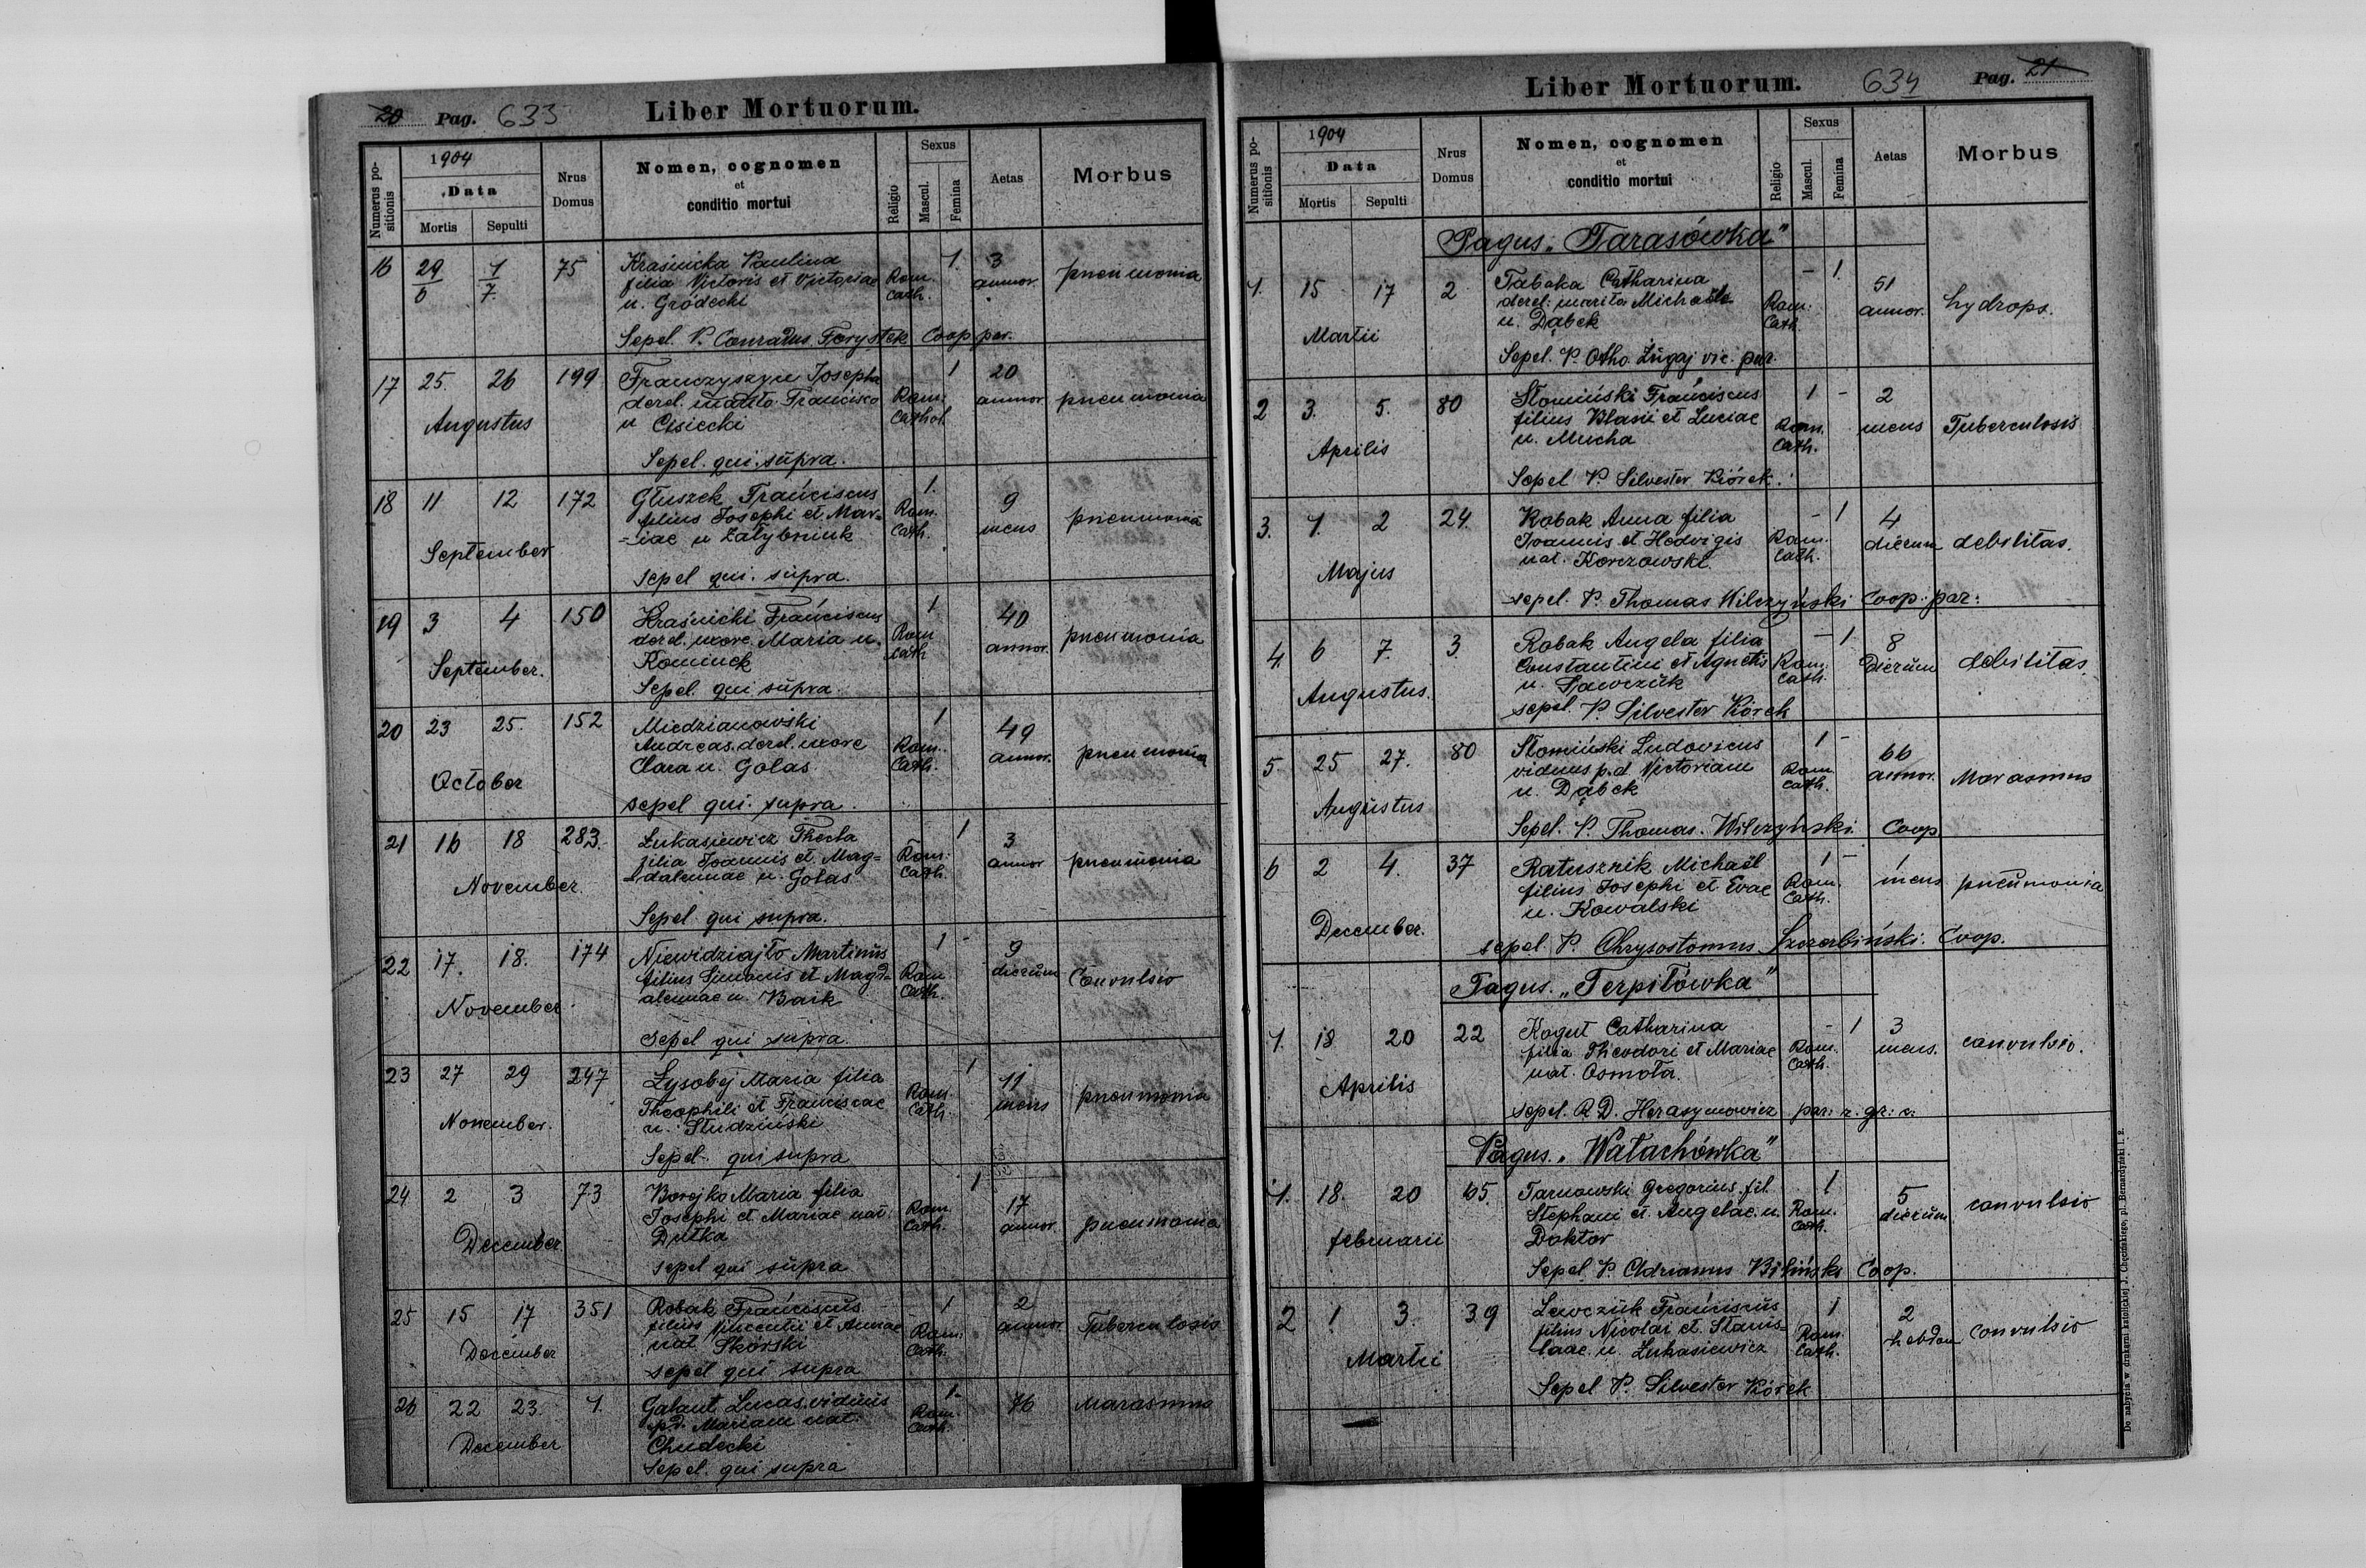 20 Pag. 633 Liber Mortuorum.
Numerus positionis
1904
Data
Mortis Sepulti
Nrus Domus
Nomen, cognomen
et
conditio mortui
Religio
Sexus
Mascul. Femina
Aetas
Morbus
16 29/6 1/7 75 Kraśnicka Paulina 1. 3
filia Victoris et Victoriae Rom. annor. pneumonia
n. Gródecki Cath.
Sepel. P. Conradus Forystek Coop par.
17 25. 26 199 Franczyszyn Josepha 1 20
derel. marito Francisco Rom. annor pneumonia
Augustus n Osiecki Cathol.
Sepel. qui supra.
18 11 12 172 Głuszek Franciscus 1. 9
filius Josephi et Mar- Rom. mens pneumonia
September -iae n Załybniuk Cath.
sepel qui supra.
19 3 4 150 Kraśnicki Franciscus 1 40
derel. uxore Maria n. Rom annor. pneumonia
September. Kominek cath
Sepel. qui supra.
20 23 25. 152 Miedzianowski 1 49
Andreas derel. uxore Rom. annor. pneumonia
October Clara n. Golas Cath.
sepel qui supra.
21 16 18 283. Łukasiewicz Thecla 1 3
filia Joannis et Mag= Rom. annor pneumonia
November. dalenae n. Golas Cath.
Sepel qui supra.
22 17. 18. 174 Niewidziajło Martinus 1 - 9
filius Simonis et Magd- Rom dierum Convulsio
November. alenae n. Baik Cath.
Sepel qui supra.
23 27 29 247 Łysobej Maria filia 1 11
Theophili et Franciscae Rom. mens pneumonia
November. n. Studziński Cath.
Sepel. qui supra
24 2 3 73 Borejko Maria filia 1 17
Josephi et Mariae nat. Rom. annor. pneumonia
December. Dutka Cath.
sepel qui supra
25 15 17 351 Robak Franciscus 1 2
filius Vincentii et Annae Rom. annor Tuberculosis
December nat Skórski Cath.
sepel qui supra
26 22 23. 1. Galant Lucas viduus 1- 76 Marasmus
p.d. Mariam nat. Rom
December Chudecki Cath.
Sepel. qui supra
Liber Mortuorum. 634 Pag. 21
Numerus positionis
1904
Data
Mortis Sepulti
Nrus Domus
Nomen, cognomen
et
conditio mortui
Religio
Sexus
Mascul. Femina
Aetas
Morbus
Pagus „Tarasówka"
1. 15 17 2 Tabaka Catharina - 1. 51
derel: marito Michaële Rom. annor. hydrops.
Martii n. Dąbek Cath
Sepel. P. Otho Żúgaj vic. par.
2 3. 5. 80 Słomiński Franciscus 1 - 2
filius Blasii et Luciae Rom. mens Tuberculosis
Aprilis n. Mucha Cath.
Sepel P. Silvester Kiórek.
3. 1. 2 24. Robak Anna filia - 1 4
Joannis et Hedvigis Rom. dierum debilitas.
Majus nat. Korczowski Cath.
sepel. P. Thomas Wilczyński Coop: par:
4. 6 7. 3. Robak Angela filia - 1 8
Constantini et Agnetis Rom. Dierum debilitas,
Augustus. n. Sawczuk Cath.
sepel. P. Silvester Kórek
5. 25 27. 80 Słomiński Ludovicus 1 - 66
viduus p.d Victoriam Rom. annor. Marasmus
Augustus n. Dąbek Cath.
Sepel. P. Thomas. Wilczyński. Coop
6 2 4. 37 Ratusznik Michaël 1 - 1
filius Josephi et Evae Rom. mens pneumonia
December. n. Kowalski Cath.
sepel P. Chrysostomus Szczerbiński. Coop.
Pagus. „Terpiłówka"
1. 18 20 22 Kogut Catharina - 1 3
filia Theodori et Mariae Rom. mens. convulsio.
Aprilis nat. Osmota. Cath.
sepel. R D. Herasymowicz par: r. gr: c:
Pagus. „Wałachówka"
1. 18. 20 65. Tarnowski Gregorius fil. 1 5
Stephani et Angelae. n. Rom. dierum convulsio
februarii Doktor Cath.
Sepel P. Adrianus Biliński Coop.
2 1 3. 39 Lewczuk Franciscus 1 2
filius Nicolai et Stanis- Rom. hebdom convulsio
Martii laae n. Łukasiewicz Cath.
Sepel P. Silvester Kiórek
Do nabycia w drukarni katolickiej J. Chęcińskiego, pl. Bernardyński l. 2.